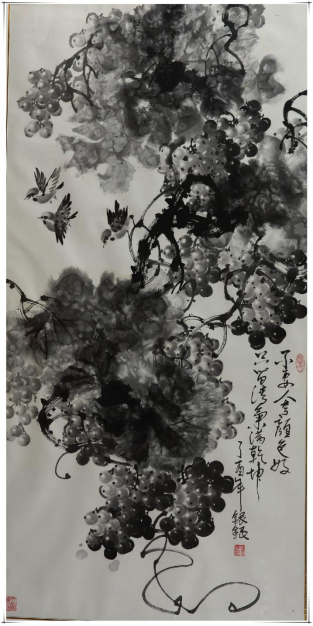 不要人夸颜色好
只留清氣满乾坤
丁酉年 银银